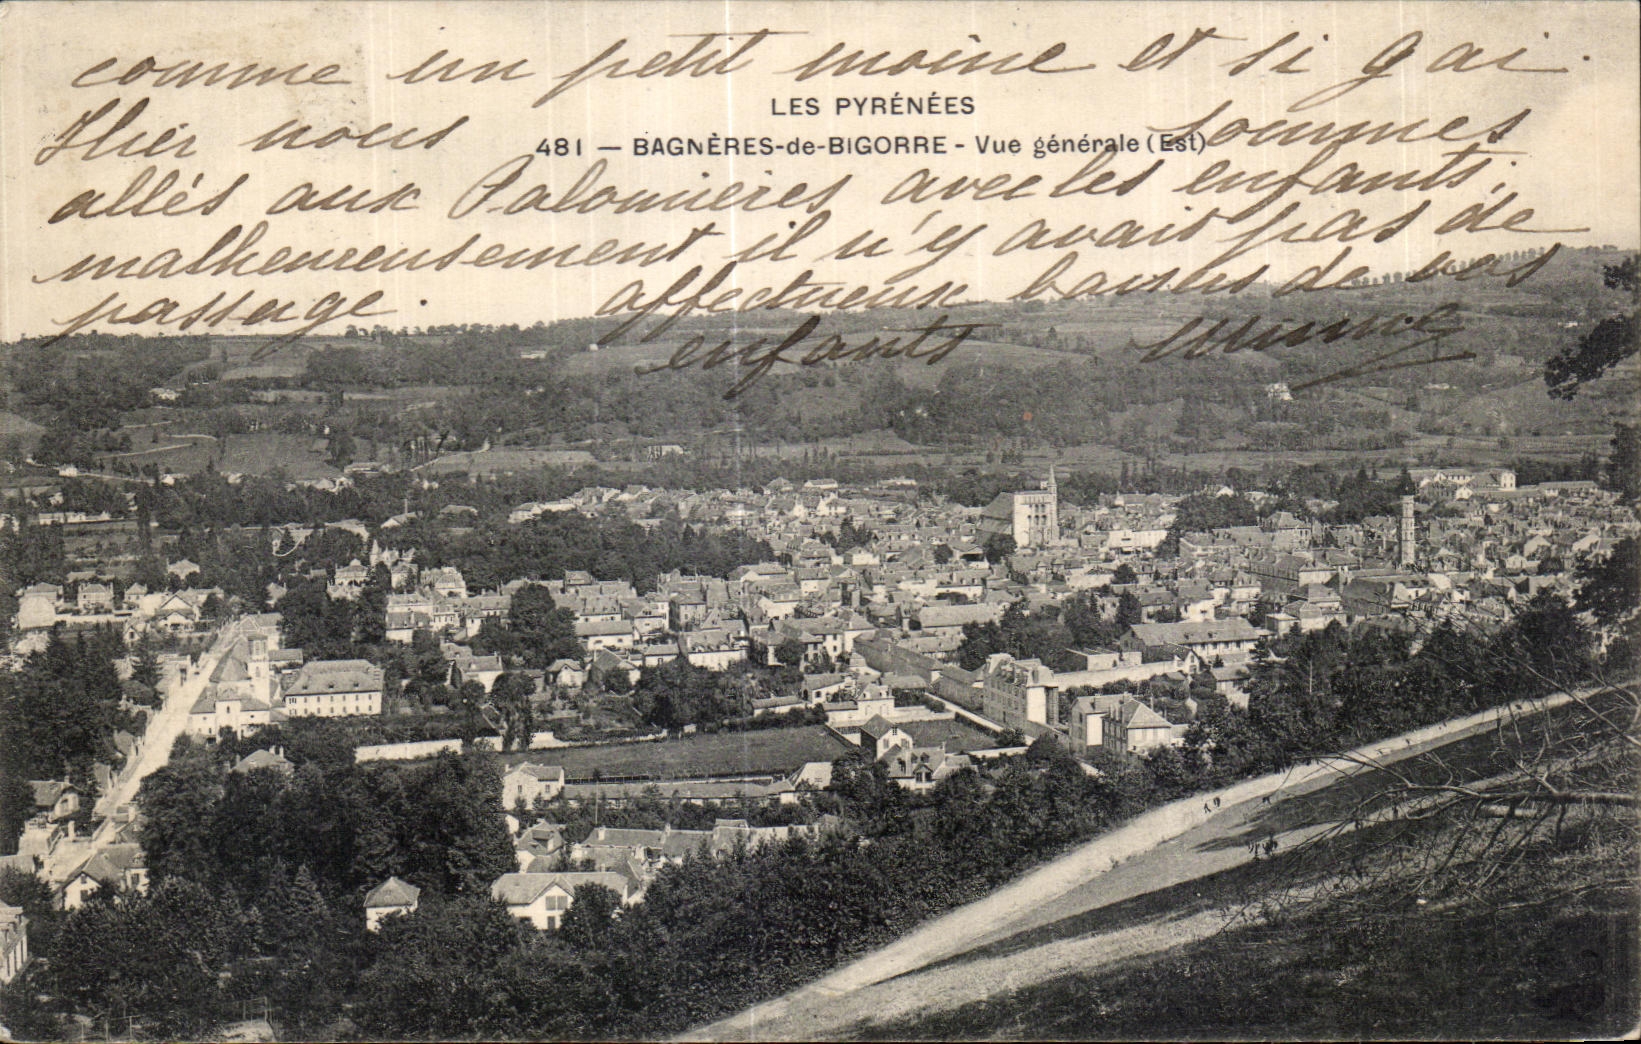 comme un petit moine et si gai.
LES PYRÉNÉES
Hier nous sommes
481 — BAGNÈRES-de-BIGORRE - Vue générale (Est)
allés aux Palomières avec les enfants;
malheureusement il n'y avait pas de
passage. affectueux baisers de vos
enfants